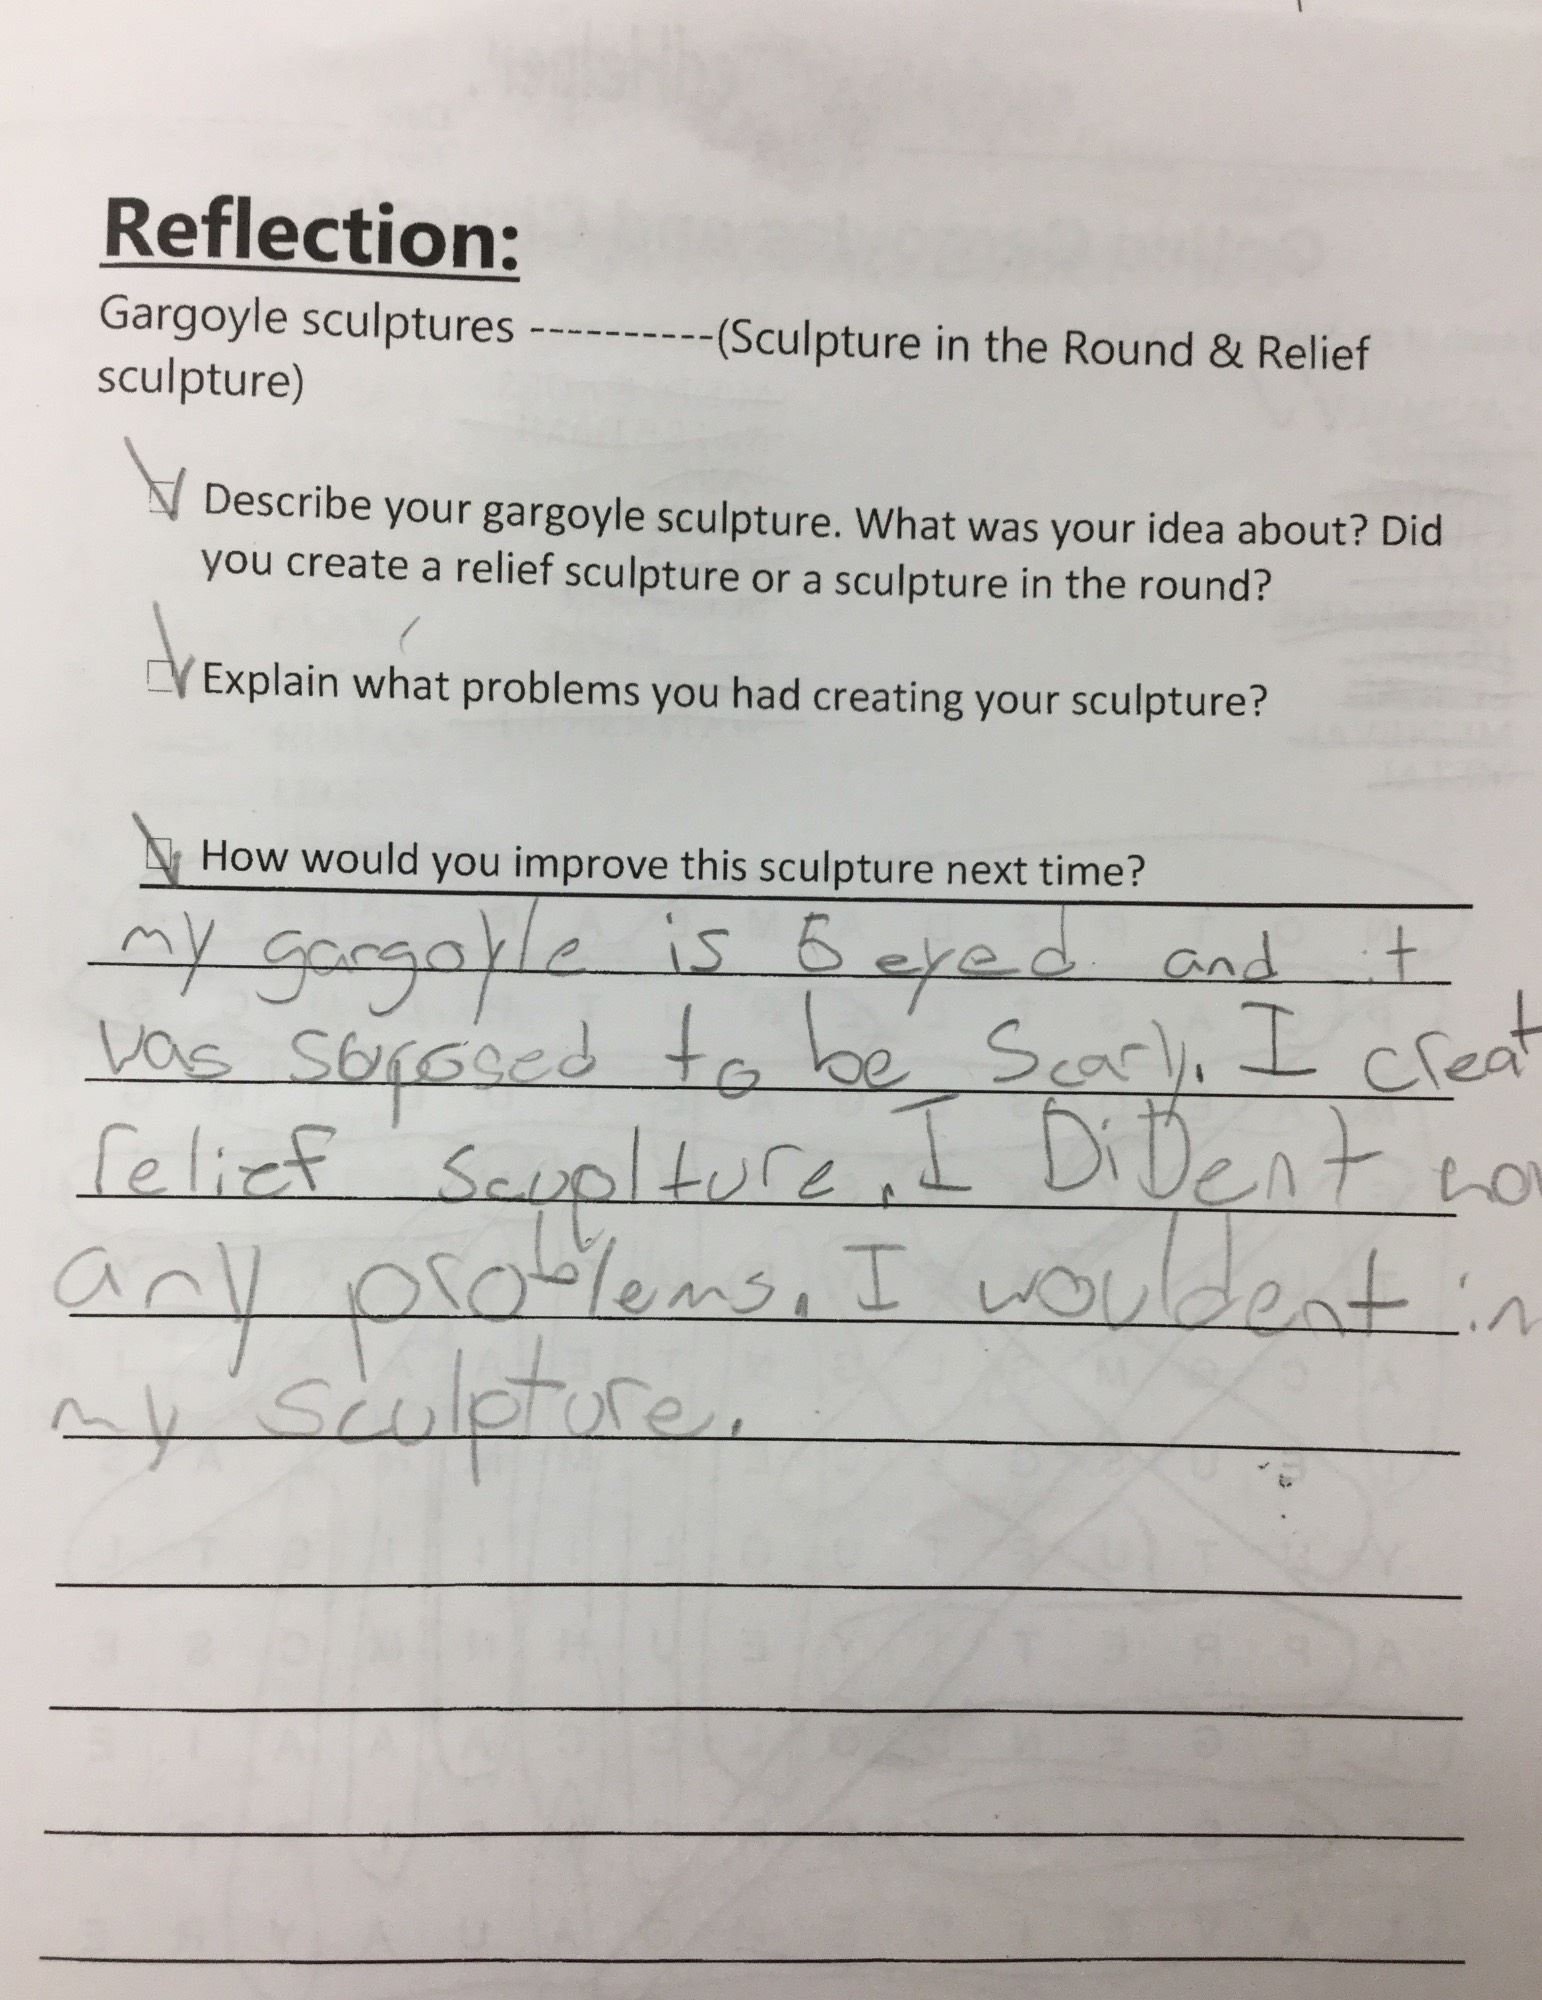 Reflection:
Gargoyle sculptures ----------(Sculpture in the Round & Relief
sculpture)
Describe your gargoyle sculpture. What was your idea about? Did
you create a relief sculpture or a sculpture in the round?
Explain what problems you had creating your sculpture?
How would you improve this sculpture next time?
my gargoyle is 6 eyed and it
was soposed to be Scary. I creat
relief scuplture. I DiDent
any problems. I wouldent
my sculpture.